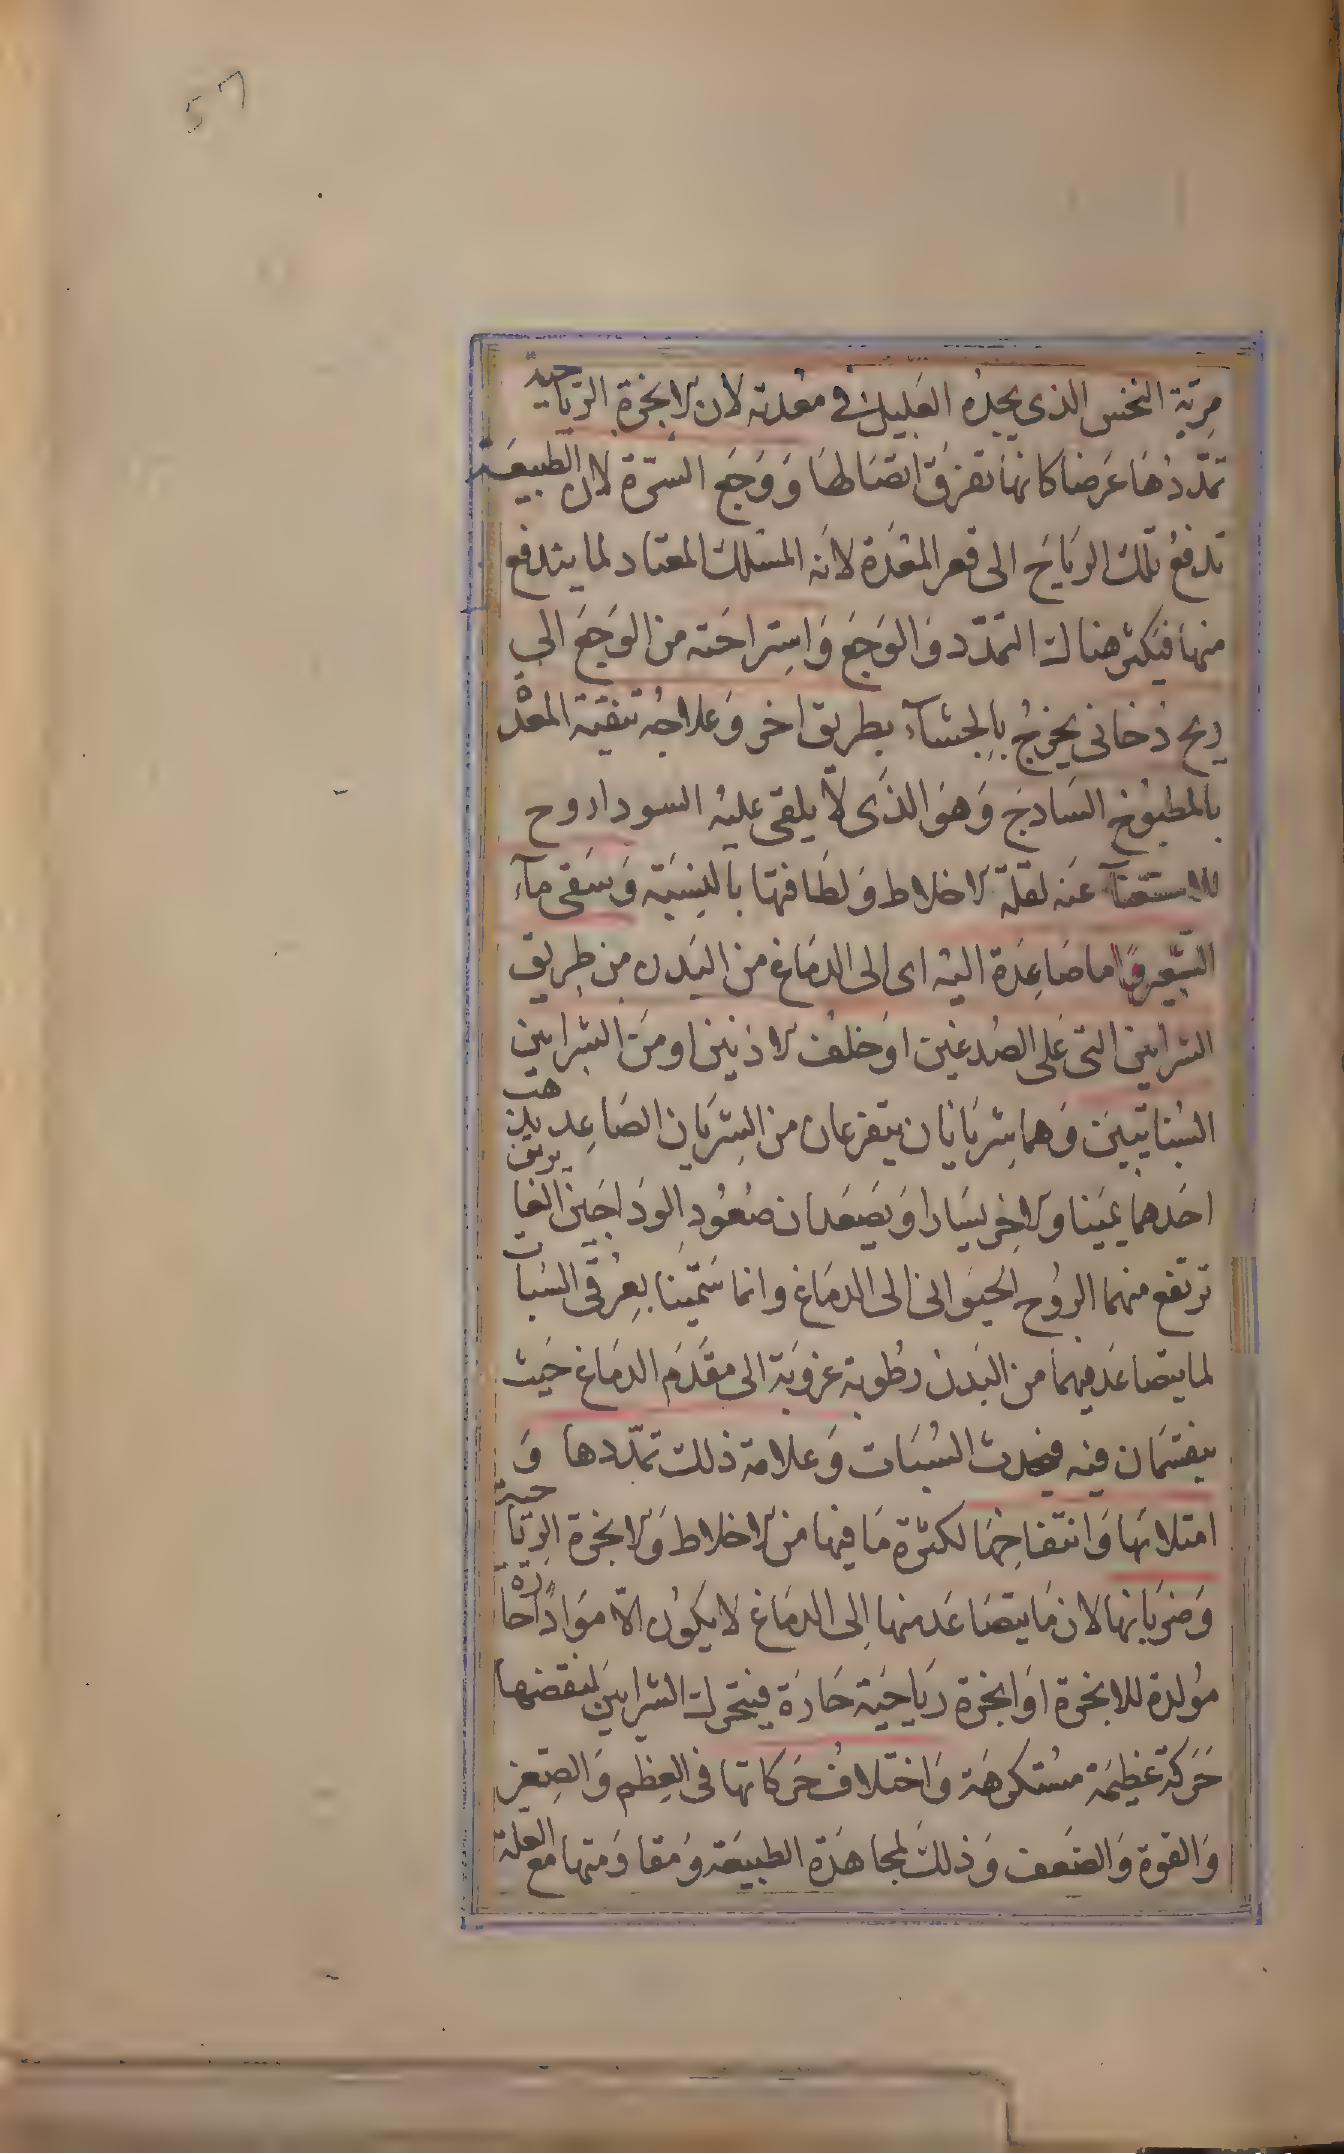 مرية النخس الذي يجده العليل في معدته لان الابخرة الرياحية
تمددها عرضا كانها تفرق اتصالها ووجع السرة لان الطبيعة
تدفع تلك الرياح الى قعر المعدة لانه المسلك المعتاد لما يندفع
منها فيكثر هناك التمدد والوجع واستراحته من الوجع الى
ريح دخاني يخرج بالجشآء بطريق اخر وعلاجه تنقية المعدة
بالمطبوخ السادج وهو الذى لا يلقى عليه السوداروح
للاستغنآ عنه لقلة الاخلاط ولطافتها بالنسبة وسقى مآء
الشعير واما صاعدة اليه اى الى الدماغ من البدن من طريق
الشرايين التى على الصدغين او خلف الاذنين او من الشرايين
السباتيين وهما شريانان يتفرعان من الشريان الصاعد يذهب
احدهما يمينا والاخر يسارا ويصعدان صعود الوداجين الغايرين
ترتفع منهما الروح الحيوانى الى الدماغ وانما سمينا بعرقى السبات
لما يتصاعد فيهما من البدن رطوبة غروية الى مقدم الدماغ حيث
ينقسمان فيه فيحدث السبات وعلامة ذلك تمددها و
امتلائها وانتفاخها لكثرة ما فيها من الاخلاط والابخرة الرياحية
وضربانها لان ما يتصاعد منها الى الدماغ لا يكون الا موادا حارة
مولدة للابخرة او ابخرة رياحية حادة فيتحرك الشرايين لنفضها
حركة عظيمة مستكرهة واختلاف حركاتها فى العظم والصغر
والقوة والضعف وذلك لمجاهدة الطبيعة ومقاومتها مع العلة